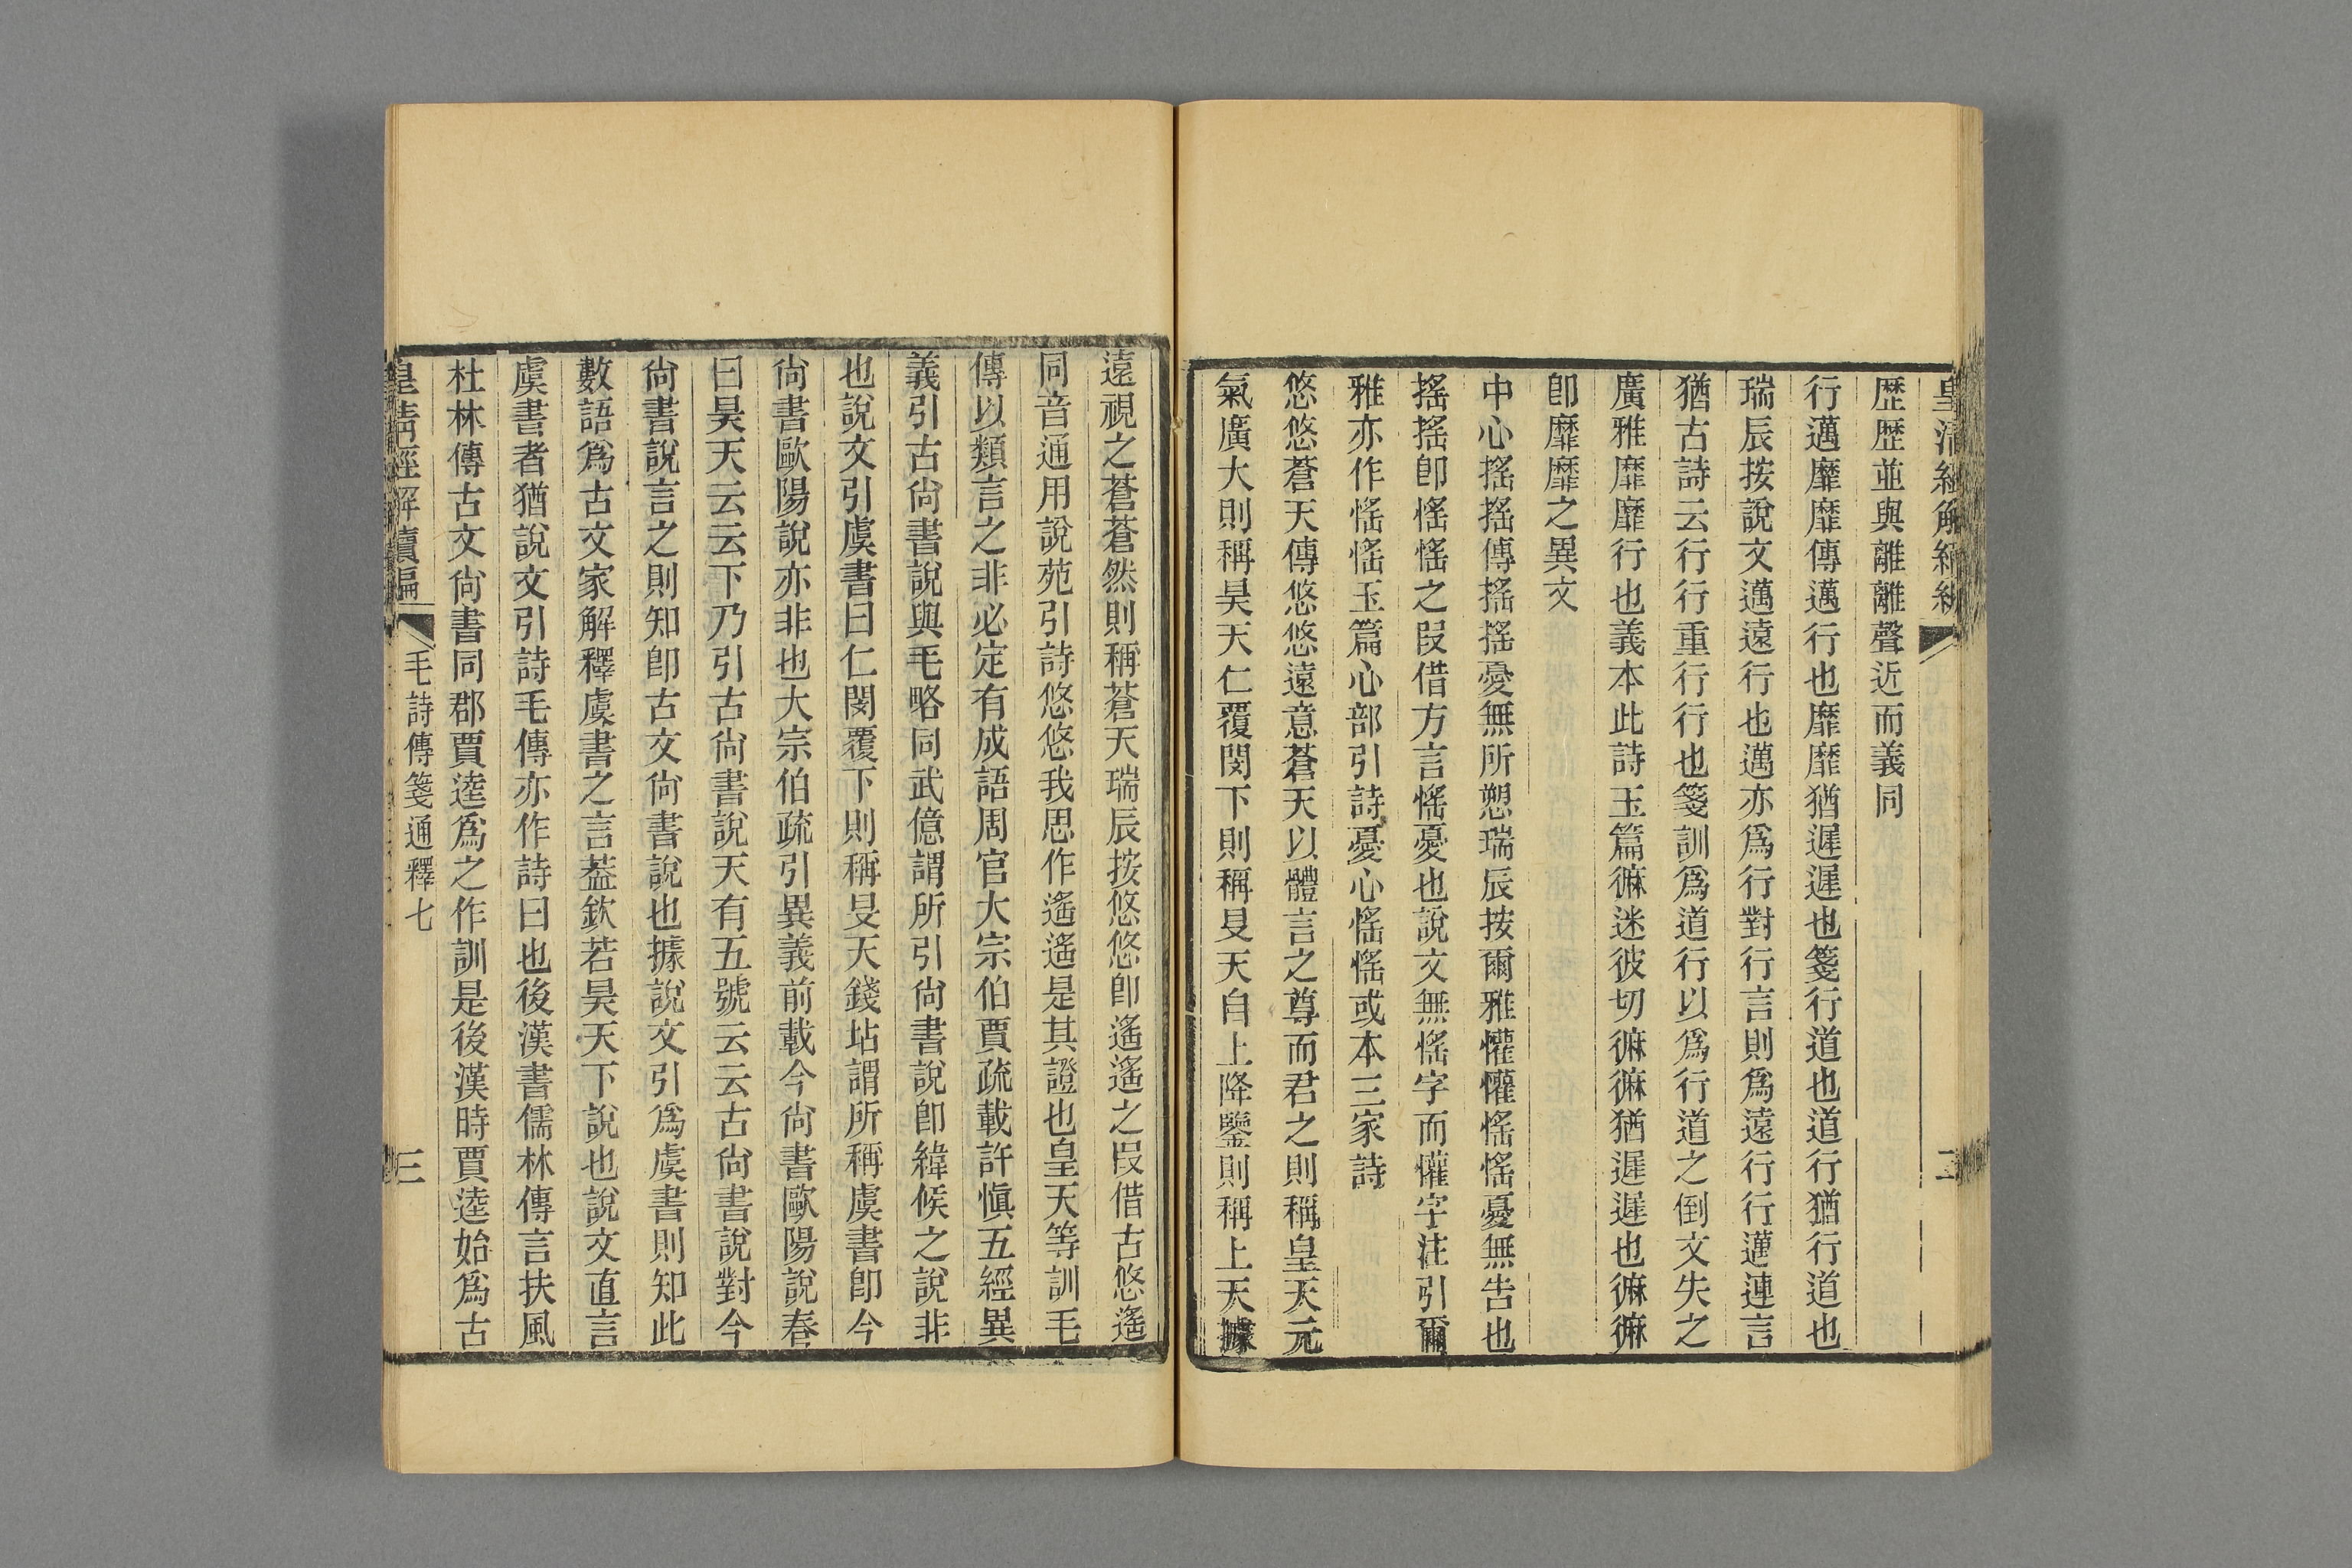 皇清經解續編
二
歴歴並與離離聲近而義同
行邁靡靡傳邁行也靡靡猶遲遲也箋行道也道行猶行道也
瑞辰按說文邁遠行也邁亦爲行對行言則爲遠行行邁連言
猶古詩云行行重行行也箋訓爲道行以爲行道之倒文失之
廣雅靡靡行也義本此詩玉篇𢕼迷彼切𢕼𢕼猶遲遲也𢕼𢕼
卽靡靡之異文
中心搖搖傳搖搖憂無所愬瑞辰按爾雅懽懽愮愮憂無告也
搖搖卽愮愮之叚借方言愮憂也說文無愮字而懽字注引爾
雅亦作愮愮玉篇心部引詩憂心愮愮或本三家詩
悠悠蒼天傳悠悠遠意蒼天以體言之尊而君之則稱皇天元
氣廣大則稱昊天仁覆閔下則稱旻天自上降鑒則稱上天據
遠視之蒼蒼然則稱蒼天瑞辰按悠悠卽遙遙之叚借古悠遙
同音通用說苑引詩悠悠我思作遙遙是其證也皇天等訓毛
傳以類言之非必定有成語周官大宗伯賈疏載許愼五經異
義引古尙書說與毛略同武億謂所引尙書說卽緯候之說非
也說文引虞書曰仁閔覆下則稱旻天錢坫謂所稱虞書卽今
尙書歐陽說亦非也大宗伯疏引異義前載今尙書歐陽說春
曰昊天云云下乃引古尙書說天有五號云云古尙書說對今
尙書說言之則知卽古文尙書說也據說文引爲虞書則知此
數語爲古文家解釋虞書之言葢欽若昊天下說也說文直言
虞書者猶說文引詩毛傳亦作詩曰也後漢書儒林傳言扶風
杜林傳古文尙書同郡賈逵爲之作訓是後漢時賈逵始爲古
皇清經解續編
毛詩傳箋通釋七
三